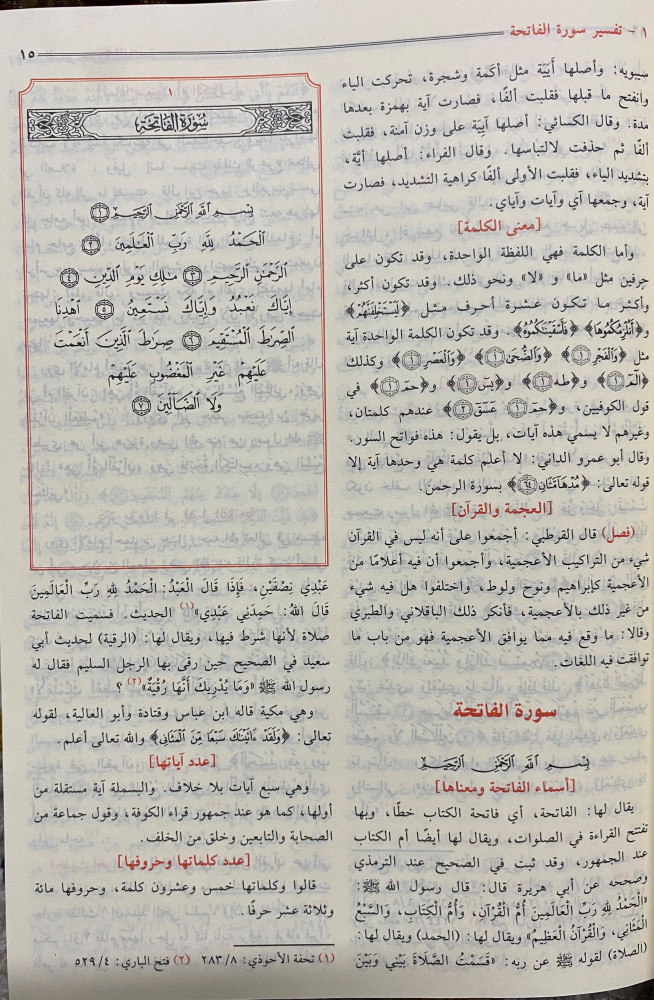 ١ - تفسير سورة الفاتحة
١٥
سيبويه: وأصلها أَيَيَة مثل أكَمة وشجرة، تحركت الياء
وانفتح ما قبلها فقلبت ألفًا، فصارت آية بهمزة بعدها
مدة. وقال الكسائي: أصلها آيِيَة على وزن آمنة، فقلبت
ألفًا ثم حذفت لالتباسها. وقال الفراء: أصلها أيَّة،
بتشديد الياء، فقلبت الأولى ألِفًا كراهية التشديد، فصارت
آية، وجمعها آي وآيات وآياي.
[معنى الكلمة]
وأما الكلمة فهي اللفظة الواحدة، وقد تكون على
حرفين مثل «ما» و «لا» ونحو ذلك. وقد تكون أكثر،
وأكثر ما تكون عشرة أحرف مثل ﴿لَيَسْتَخْلِفَنَّهُمْ﴾
و﴿أَنُلْزِمُكُمُوهَا﴾ ﴿فَأَسْقَيْنَٰكُمُوهُ﴾. وقد تكون الكلمة الواحدة آية
مثل ﴿وَالْفَجْرِ ١﴾ ﴿وَالضُّحَىٰ ١﴾ ﴿وَالْعَصْرِ ١﴾ وكذلك
﴿الٓمٓ ١﴾ و﴿طه ١﴾ و﴿يسٓ ١﴾ و﴿حمٓ ١﴾ في
قول الكوفيين، و﴿حمٓ ١ عٓسٓقٓ ٢﴾ عندهم كلمتان،
وغيرهم لا يسمي هذه آيات، بل يقول: هذه فواتح السور.
وقال أبو عمرو الداني: لا أعلم كلمة هي وحدها آية إلا
قوله تعالى: ﴿مُدْهَآمَّتَانِ ٦٤﴾ بسورة الرحمن.
[العجمة والقرآن]
(فصل) قال القرطبي: أجمعوا على أنه ليس في القرآن
شيء من التراكيب الأعجمية، وأجمعوا أن فيه أعلامًا من
الأعجمية كإبراهيم ونوح ولوط، واختلفوا هل فيه شيء
من غير ذلك بالأعجمية، فأنكر ذلك الباقلاني والطبري
وقالا: ما وقع فيه مما يوافق الأعجمية فهو من باب ما
توافقت فيه اللغات.
سورة الفاتحة
بِسْمِ اللَّهِ الرَّحْمَٰنِ الرَّحِيمِ
[أسماء الفاتحة ومعناها]
يقال لها: الفاتحة، أي فاتحة الكتاب خطًا، وبها
تفتتح القراءة في الصلوات، ويقال لها أيضًا أم الكتاب
عند الجمهور، وقد ثبت في الصحيح عند الترمذي
وصححه عن أبي هريرة قال: قال رسول الله ﷺ:
«الْحَمْدُ لِلهِ رَبِّ الْعَالَمِينَ أُمُّ الْقُرْآنِ، وَأُمُّ الْكِتَابِ، وَالسَّبْعُ
الْمَثَانِي، وَالْقُرْآنُ الْعَظِيمُ» ويقال لها: (الحمد) ويقال لها:
(الصلاة) لقوله ﷺ عن ربه: «قَسَمْتُ الصَّلَاةَ بَيْنِي وَبَيْنَ
١
سُورَةُ الْفَاتِحَةِ
بِسْمِ اللَّهِ الرَّحْمَٰنِ الرَّحِيمِ ١
الْحَمْدُ لِلَّهِ رَبِّ الْعَٰلَمِينَ ٢
الرَّحْمَٰنِ الرَّحِيمِ ٣ مَٰلِكِ يَوْمِ الدِّينِ ٤
إِيَّاكَ نَعْبُدُ وَإِيَّاكَ نَسْتَعِينُ ٥ اهْدِنَا
الصِّرَٰطَ الْمُسْتَقِيمَ ٦ صِرَٰطَ الَّذِينَ أَنْعَمْتَ
عَلَيْهِمْ غَيْرِ الْمَغْضُوبِ عَلَيْهِمْ
وَلَا الضَّآلِّينَ ٧
عَبْدِي نِصْفَيْنِ، فَإِذَا قَالَ الْعَبْدُ: الْحَمْدُ لِلهِ رَبِّ الْعَالَمِينَ
قَالَ اللهُ: حَمِدَنِي عَبْدِي»(١) الحديث. فسميت الفاتحة
صلاة لأنها شرط فيها، ويقال لها: (الرقية) لحديث أبي
سعيد في الصحيح حين رقى بها الرجل السليم فقال له
رسول الله ﷺ «وَمَا يُدْرِيكَ أَنَّهَا رُقْيَةٌ»(٢) ؟
وهي مكية قاله ابن عباس وقتادة وأبو العالية، لقوله
تعالى: ﴿وَلَقَدْ ءَاتَيْنَٰكَ سَبْعًا مِّنَ الْمَثَانِي﴾ والله تعالى أعلم.
[عدد آياتها]
وهي سبع آيات بلا خلاف. والبسملة آية مستقلة من
أولها، كما هو عند جمهور قراء الكوفة، وقول جماعة من
الصحابة والتابعين وخلق من الخلف.
[عدد كلماتها وحروفها]
قالوا وكلماتها خمس وعشرون كلمة، وحروفها مائة
وثلاثة عشر حرفًا.
(١) تحفة الأحوذي: ٢٨٣/٨ (٢) فتح الباري: ٥٢٩/٤